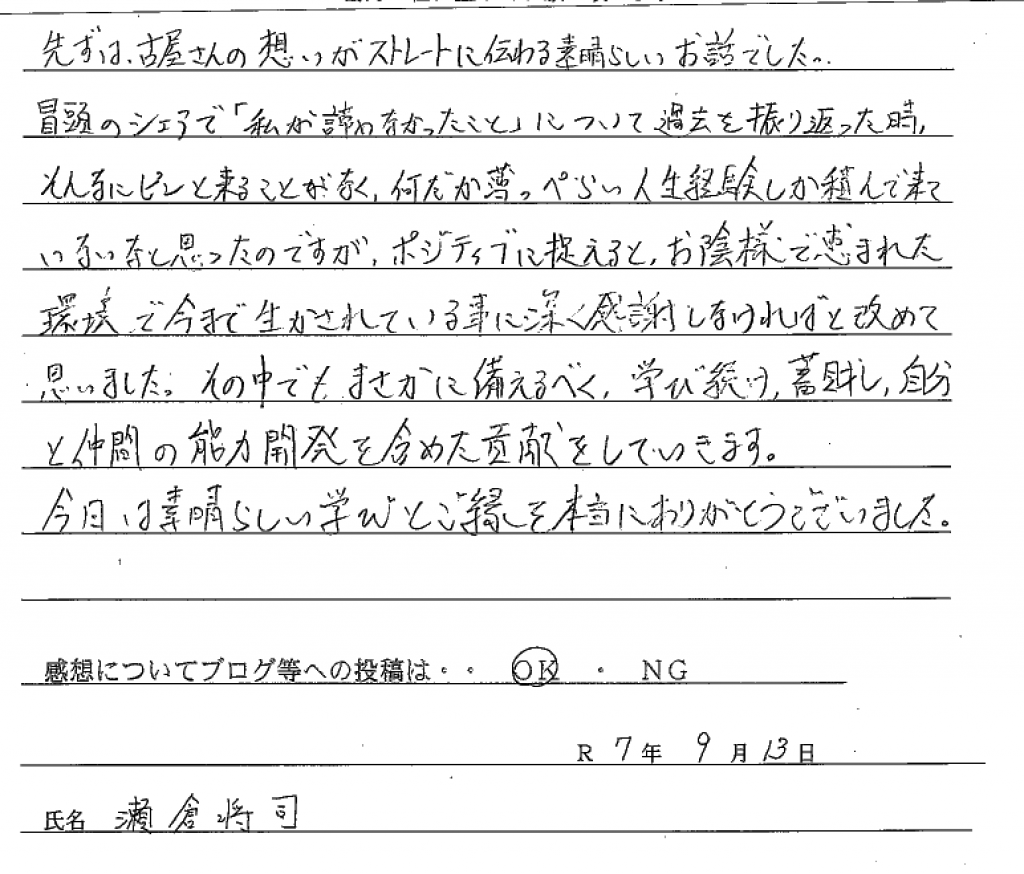 先ずは、古屋さんの想いがストレートに伝わる素晴らしいお話でした。
冒頭のシェアで「私が諦めなかったこと」について過去を振り返った時,
そんなにピンと来ることがなく,何だか薄っぺらい人生経験しか積んで来て
いないなと思ったのですが,ポジティブに捉えると,お陰様で恵まれた
環境で今まで生かされている事に深く感謝しなければと改めて
思いました。その中でもまさかに備えるべく,学び続け,蓄財し,自分
と仲間の能力開発を含めた貢献をしていきます。
今日は素晴らしい学びとご縁を本当にありがとうございました。
感想についてブログ等への投稿は・・ OK ・ NG
R 7年 9月13日
氏名 瀬倉将司